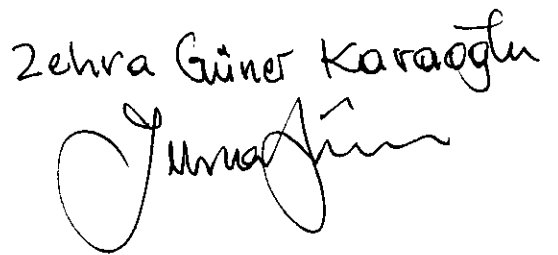 Zehra Güner Karaoğlu